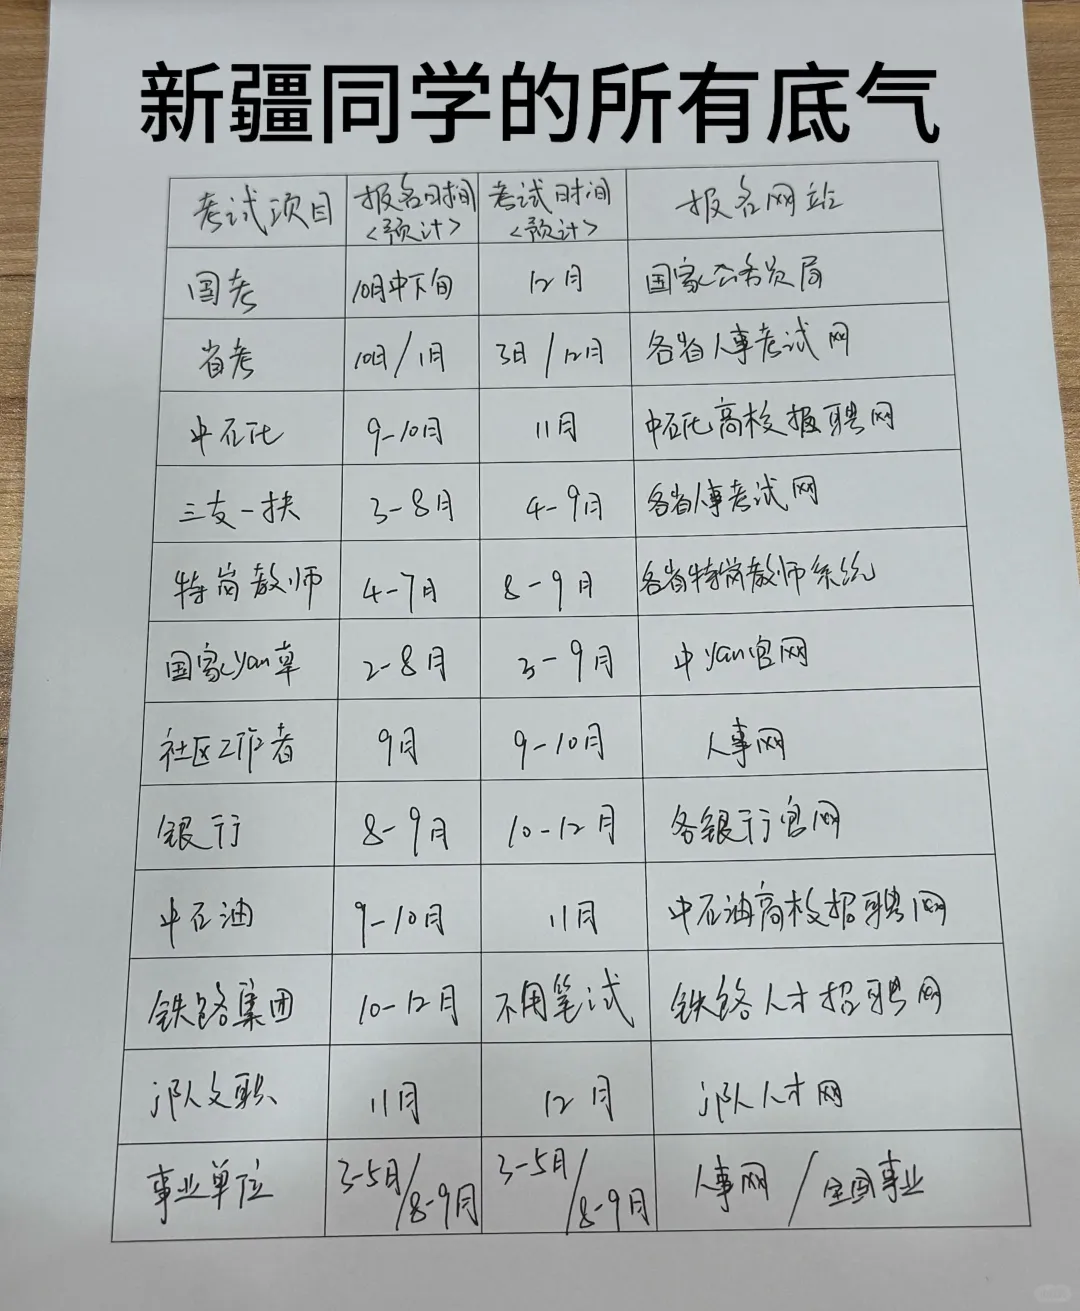 新疆同学的所有底气
考试项目 报名时间<预计> 考试时间<预计> 报名网站
国考 10月中下旬 12月 国家公务员局
省考 10日/1月 3日/12月 各省人事考试网
中石化 9-10月 11月 中石化高校报聘网
三支一扶 3-8月 4-9月 各省人事考试网
特岗教师 4-7月 8-9月 各省特岗教师系统
国家yan草 2-8月 3-9月 中yan官网
社区工作者 9月 9-10月 人事网
银行 8-9月 10-12月 各银行官网
中石油 9-10月 11月 中石油高校招聘网
铁路集团 10-12月 不用笔试 铁路人才招聘网
j队文职 11月 12月 j队人才网
事业单位 3-5月/8-9月 3-5月/8-9月 人事网/全国事业